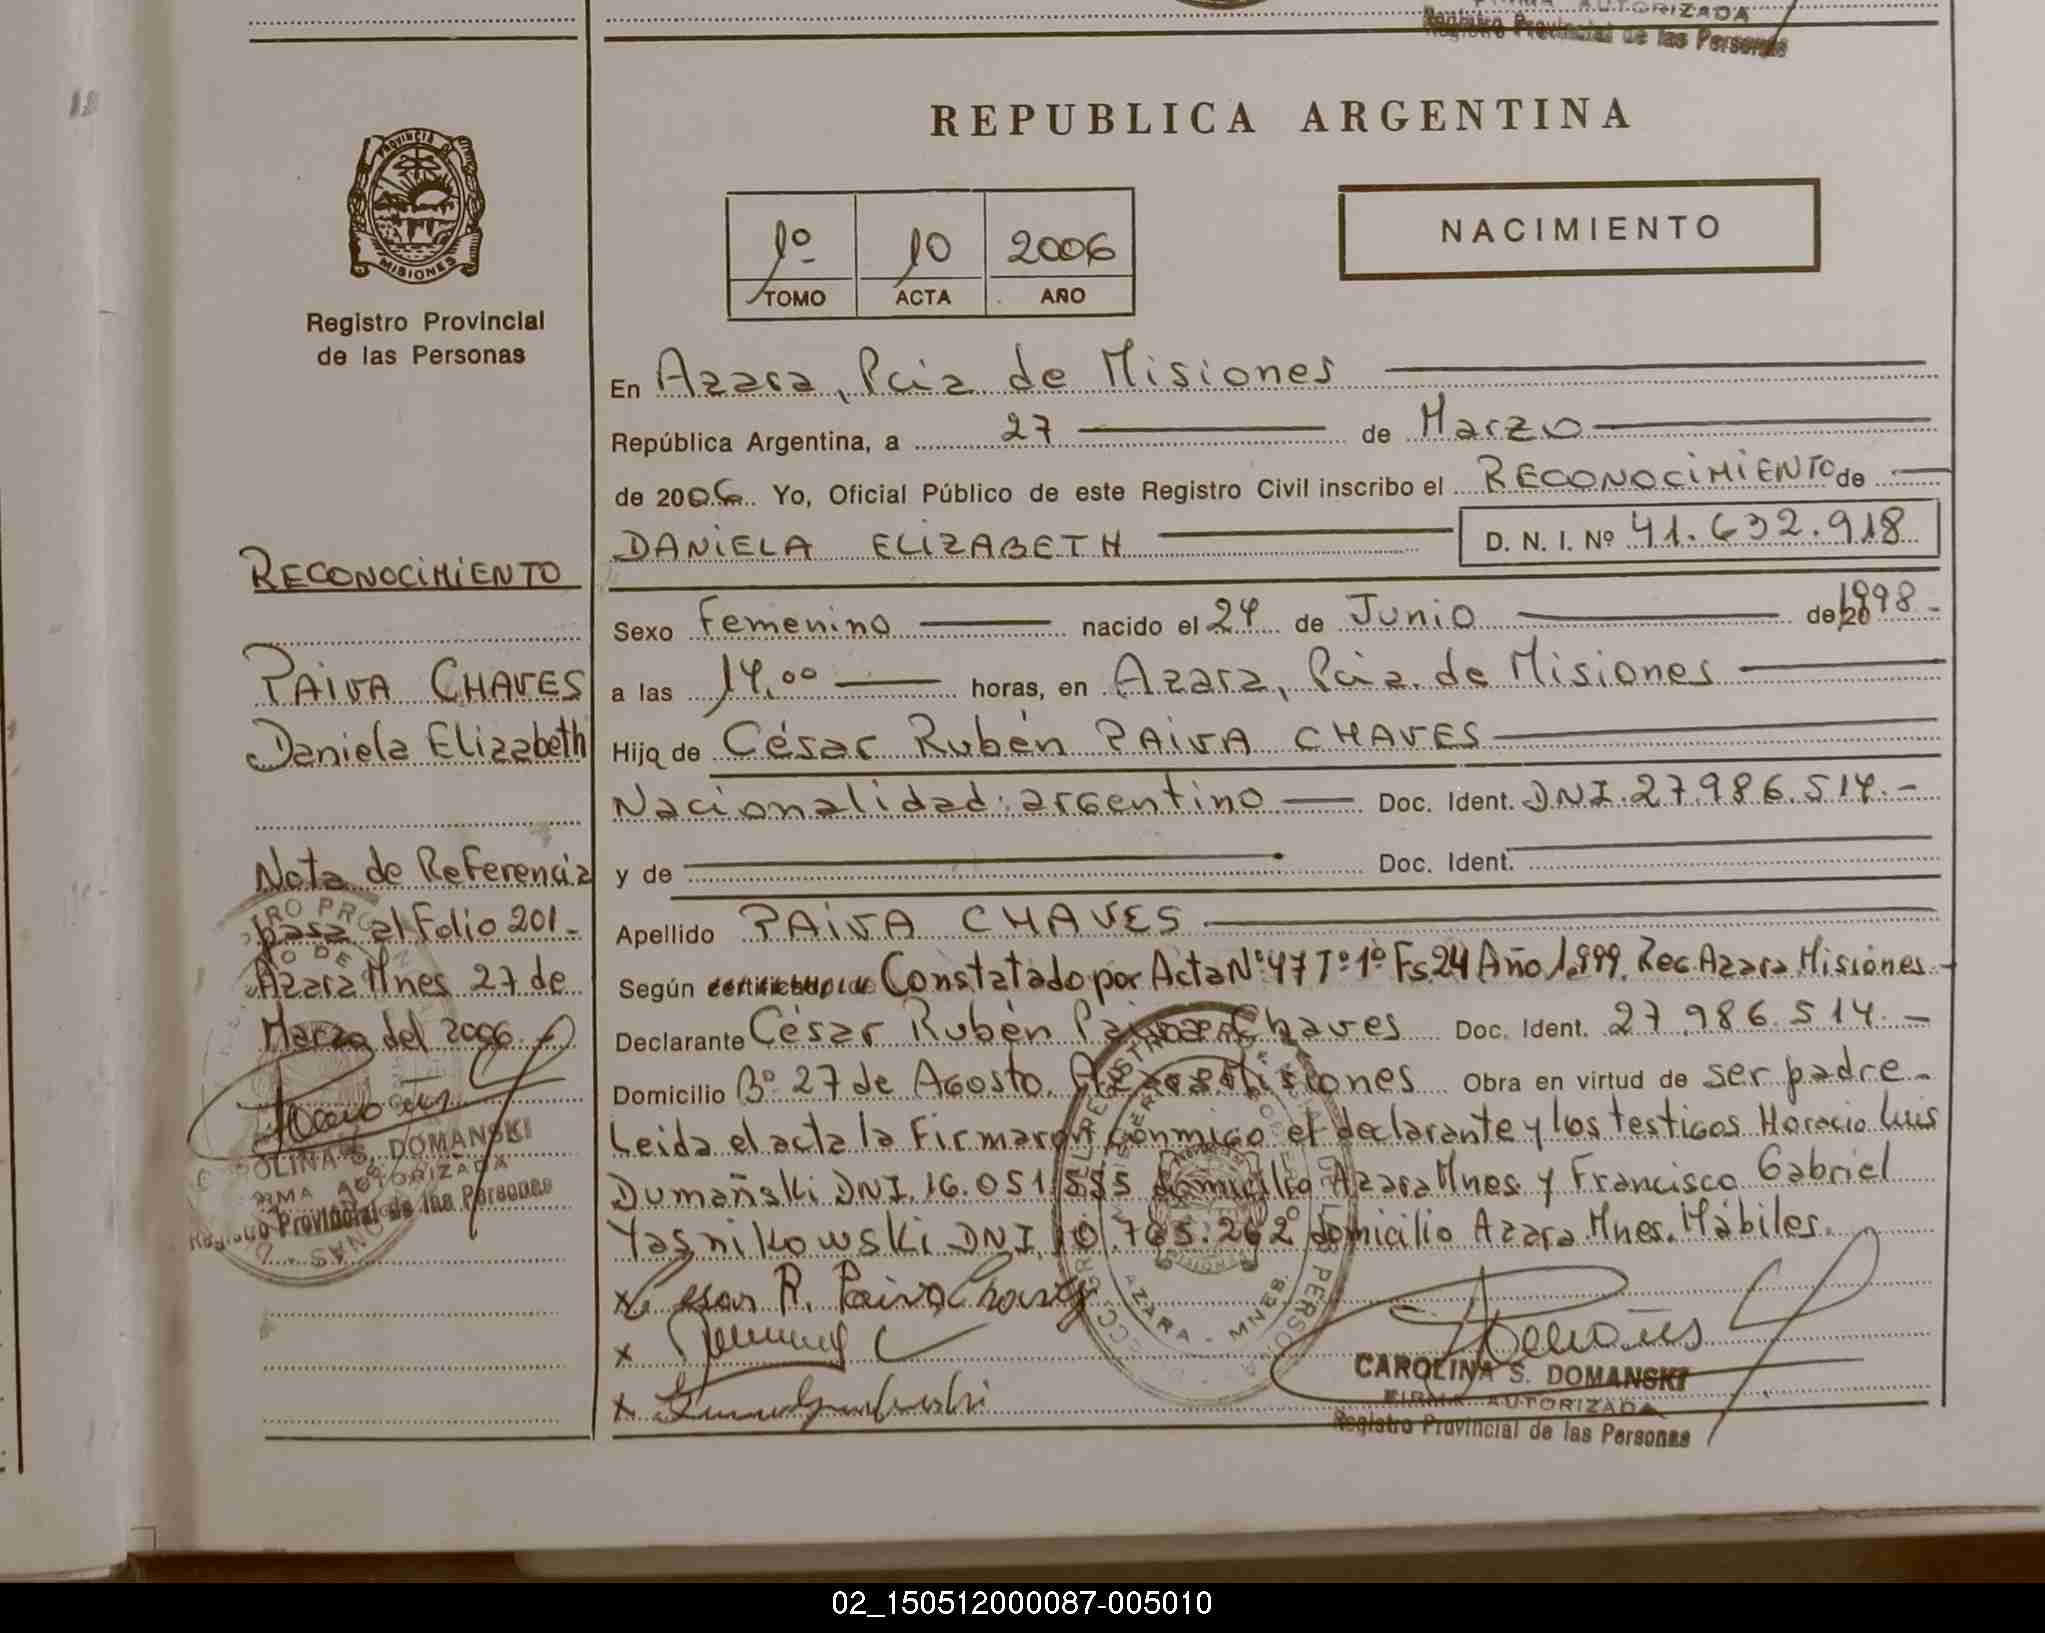 AUTORIZADA
Registro Provincial de las Personas
REPUBLICA ARGENTINA
PROVINCIA DE
MISIONES
Registro Provincial
de las Personas
1º 10 2006
TOMO ACTA AÑO
NACIMIENTO
En Azara, Pcia de Misiones
República Argentina, a 27 de Marzo
de 2006. Yo, Oficial Público de este Registro Civil inscribo el RECONOCIMIENTO de
DANIELA ELIZABETH D. N. I. Nº 41.632.918
Sexo Femenino nacido el 24 de Junio de 20 1998.-
a las 14,00 horas, en Azara, Pcia. de Misiones
Hija de César Rubén PAIVA CHAVES
Nacionalidad: argentino Doc. Ident. DNI.27.986.514.-
y de Doc. Ident.
Apellido PAIVA CHAVES
Según Constatado por Acta Nº 47 Tº 1º Fs.24 Año 1.999. Rec. Azara Misiones.-
Declarante César Rubén Paiva Chaves Doc. Ident. 27.986.514.-
Domicilio Bº 27 de Agosto. Azara Misiones Obra en virtud de ser padre.-
Leida el acta la Firmaron conmigo el declarante y los testigos Horacio Luis
Dumañski DNI.16.051.555 domicilio Azara Mnes y Francisco Gabriel
Yasnikowski DNI.10.765.262 domicilio Azara Mnes. Hábiles.
x Cesar R. Paiva Chavez
x
x
CAROLINA S. DOMANSKI
FIRMA AUTORIZADA
Registro Provincial de las Personas
AZARA - MNES.
RECONOCIMIENTO
PAIVA CHAVES
Daniela Elizabeth
Nota de Referencia
pasa al Folio 201.-
Azara Mnes 27 de
Marzo del 2006.-
CAROLINA S. DOMANSKI
FIRMA AUTORIZADA
Registro Provincial de las Personas
02_150512000087-005010